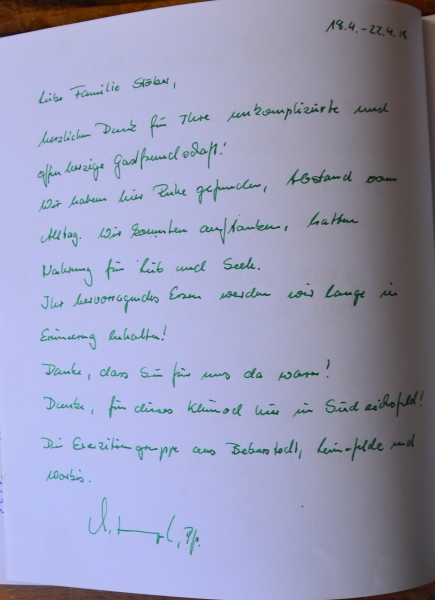 18.4.-22.4.18
Liebe Familie Stöber,
herzlichen Dank für Ihre unkomplizierte und
offenherzige Gastfreundschaft!
Wir haben hier Ruhe gefunden, Abstand vom
Alltag. Wir konnten auftanken, hatten
Nahrung für Leib und Seele.
Ihr hervorragendes Essen werden wir lange in
Erinnerung behalten!
Danke, dass Sie für uns da waren!
Danke, für dieses Kleinod hier im Südeichsfeld!
Die Exerzitiengruppe aus Beberstedt, Leinefelde und
Worbis.
Pfr.